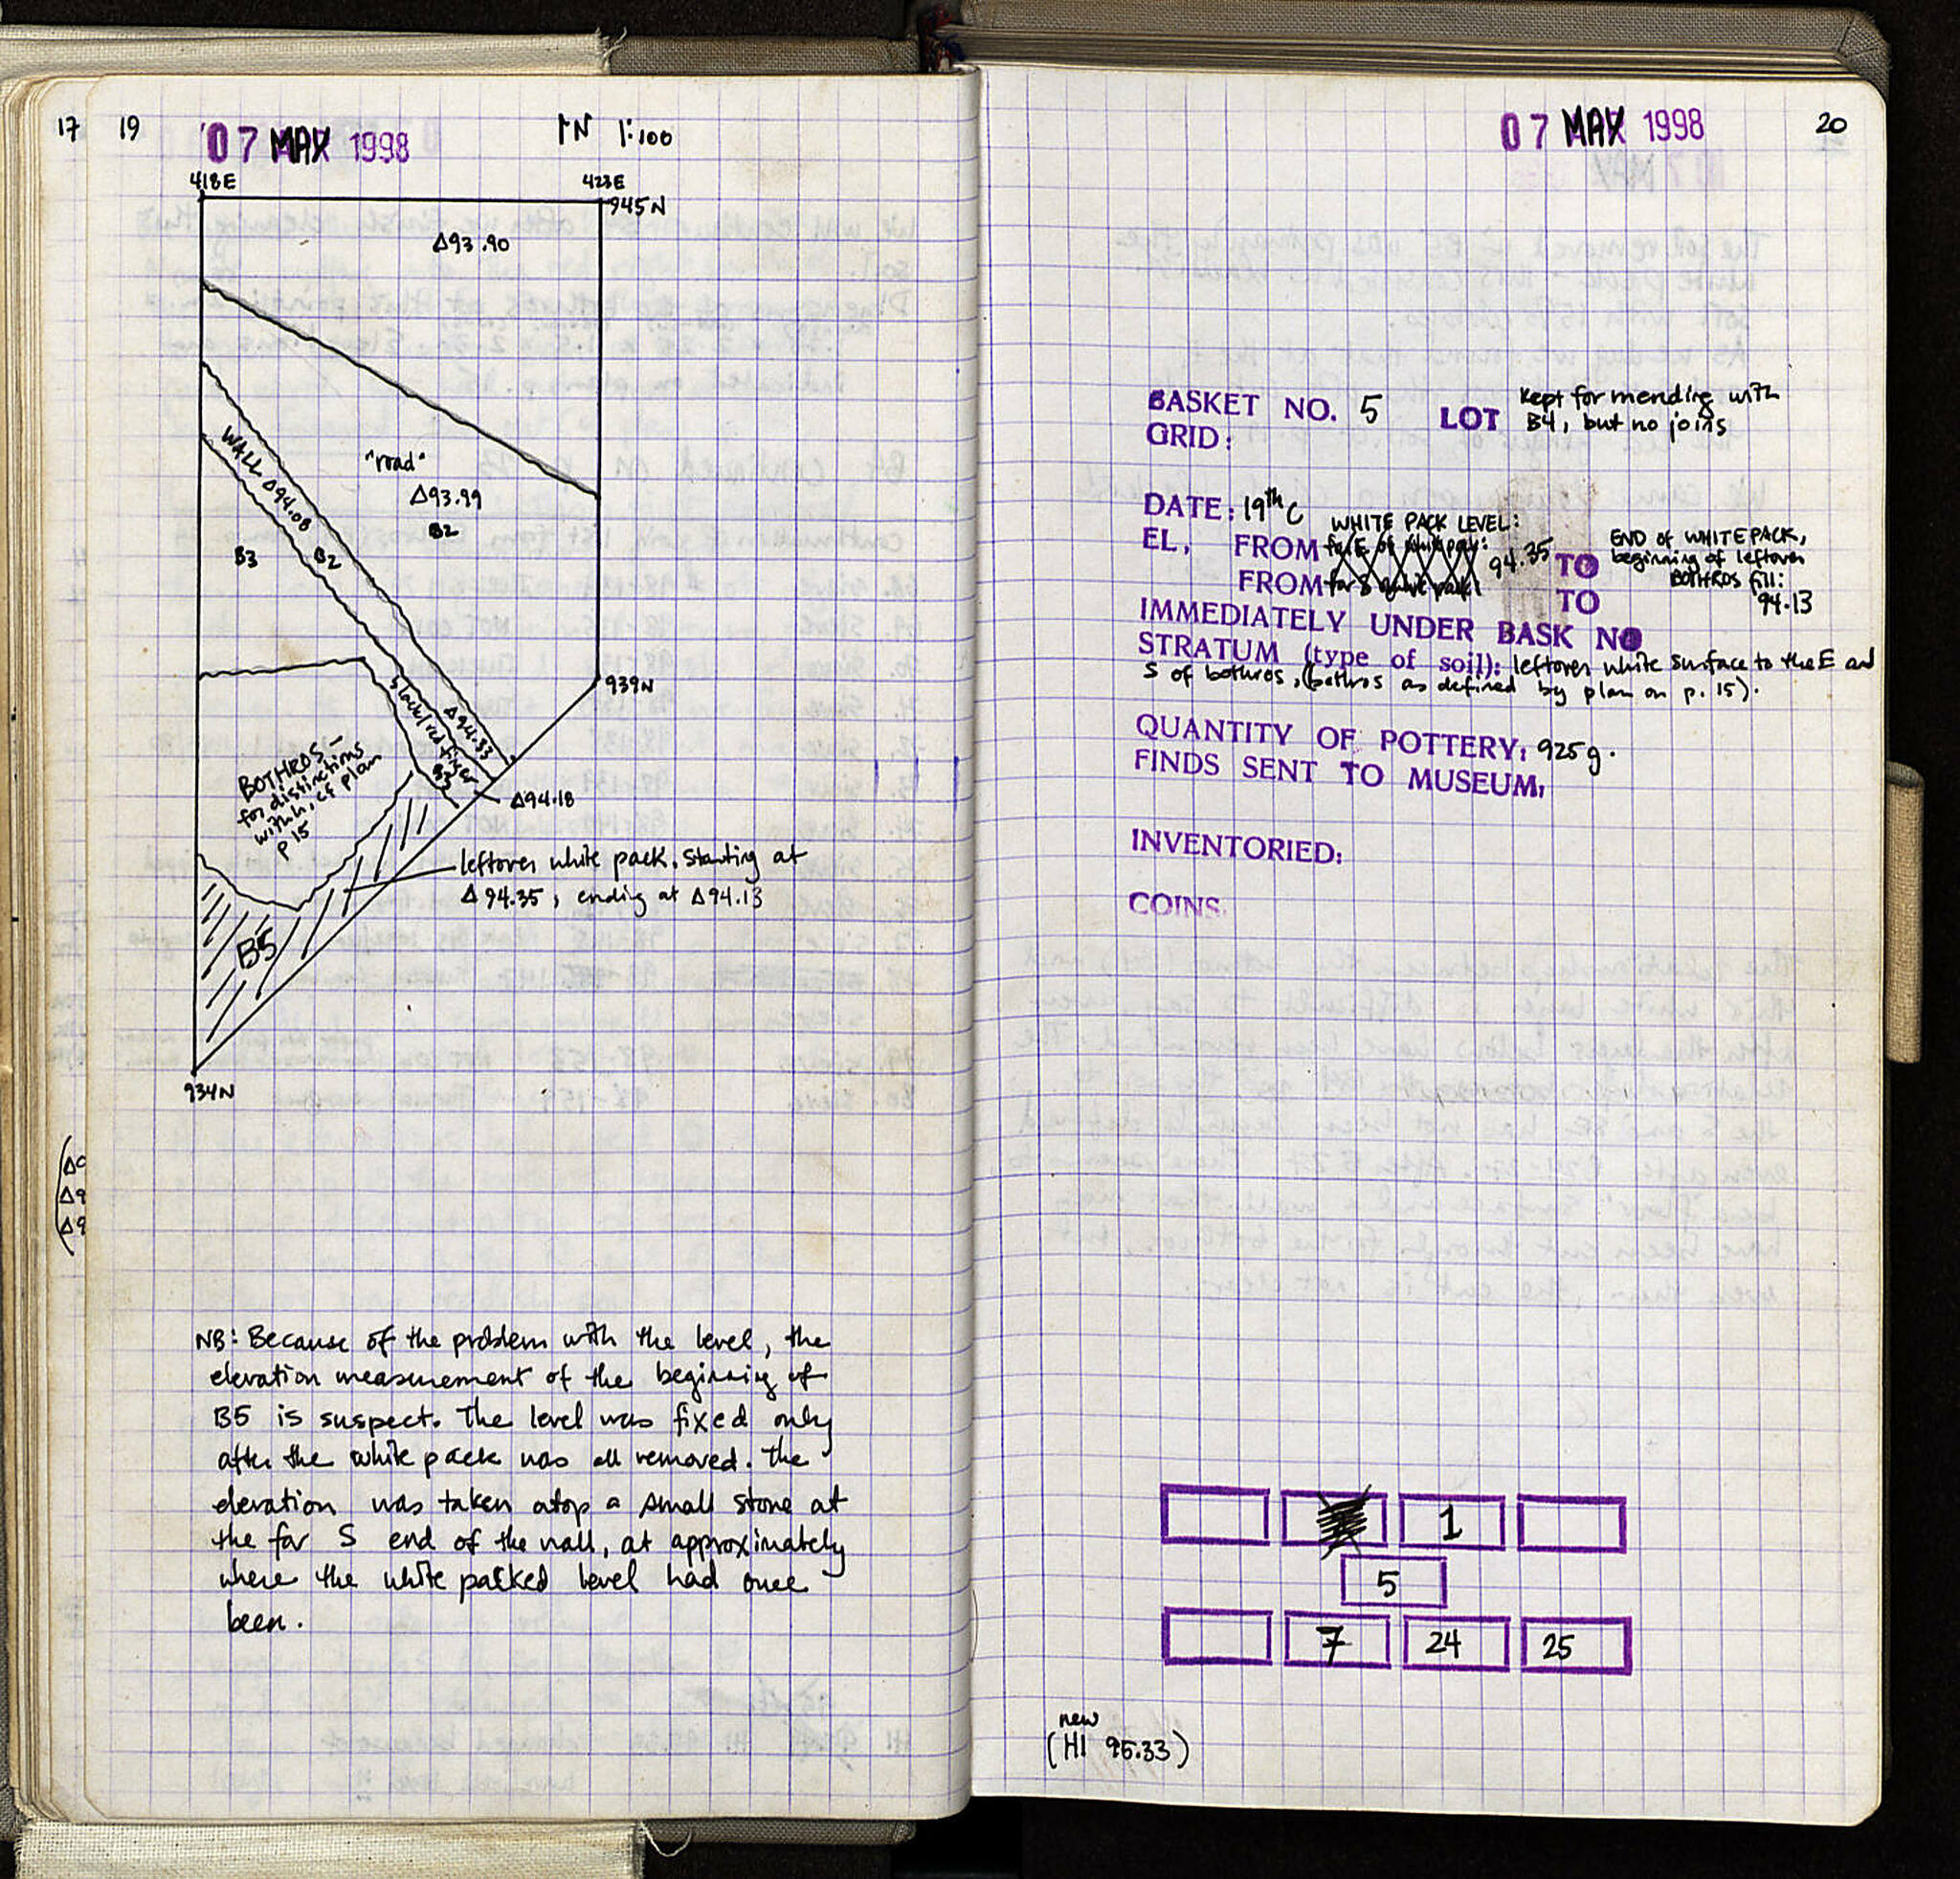 17 19
07 MAY 1998
N 1:100
418E
423E
945N
Δ93.90
"road"
Δ93.99
B2
WALL Δ94.08
B2
B3
939N
Δ94.33
B3
Δ94.18
BOTHROS –
for distinctions
within, cf plan
p 15
leftover white pack, starting at
Δ94.35, ending at Δ94.13
B5
934N
(Δ9
Δ9
Δ9
NB: Because of the problem with the level, the
elevation measurement of the beginning of
B5 is suspect. The level was fixed only
after the white pack was all removed. The
elevation was taken atop a small stone at
the far S end of the wall, at approximately
where the white packed level had once
been.
07 MAY 1998
20
BASKET NO. 5 LOT Kept for mending with
B4, but no joins
GRID:
DATE: 19th C
WHITE PACK LEVEL:
EL, FROM 94.35 TO END OF WHITE PACK,
beginning of leftover
BOTHROS fill:
94.13
FROM TO
IMMEDIATELY UNDER BASK NO
STRATUM (type of soil): leftover white surface to the E and
S of bothros, (bothros as defined by plan on p. 15).
QUANTITY OF POTTERY: 925g.
FINDS SENT TO MUSEUM:
INVENTORIED:
COINS
1
5
7 24 25
new
(HI 95.33)